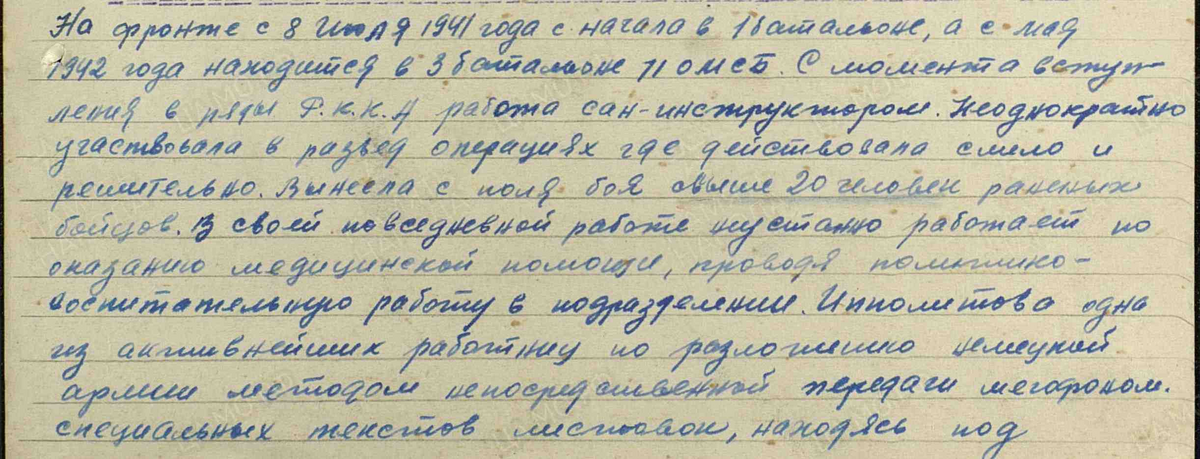 На фронте с 8 Июля 1941 года с начала в 1 батальоне, а с мая
1942 года находится в 3 батальоне 71 ОМСБ. С момента вступ-
ления в ряды Р.К.К.А работа сан-инструктором. Неоднократно
участвовала в развед операциях где действовала смело и
решительно. Вынесла с поля боя свыше 20 человек раненых
бойцов. В своей повседневной работе неустанно работает по
оказанию медицинской помощи, проводя политико-
воспитательную работу в подразделении. Ипполитова одна
из активнейших работниц по разложению немецкой
армии методом непосредственной передачи мегафоном.
специальных текстов листовок, находясь под